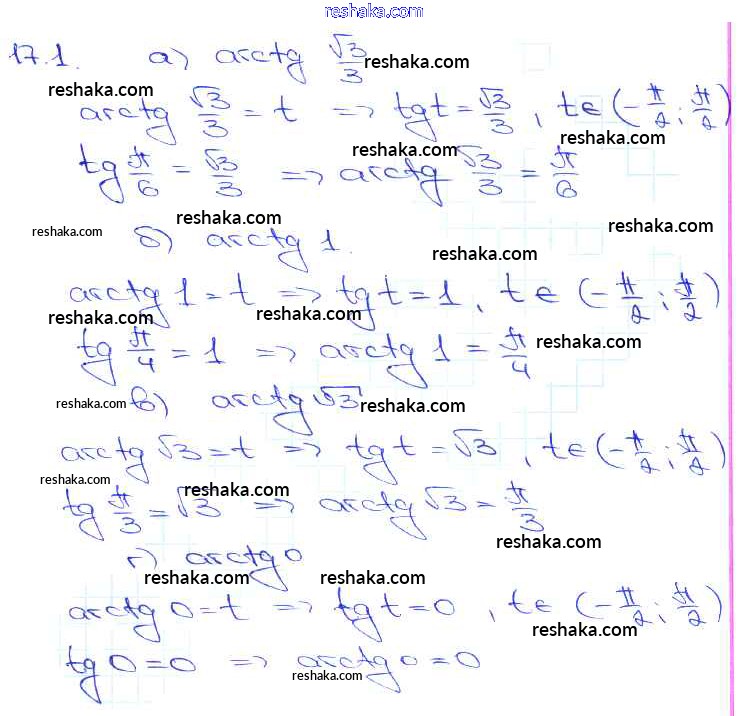 reshaka.com
17.1. а) arctg √3/3 reshaka.com
reshaka.com
arctg √3/3 = t => tg t = √3/3, t∈(-π/2; π/2)
reshaka.com
tg π/6 = √3/3 => arctg √3/3 = π/6
reshaka.com
reshaka.com
reshaka.com reshaka.com
б) arctg 1.
reshaka.com
arctg 1 = t => tg t = 1, t∈(-π/2; π/2)
reshaka.com reshaka.com
tg π/4 = 1 => arctg 1 = π/4 reshaka.com
reshaka.com в) arctg √3 reshaka.com
arctg √3 = t => tg t = √3, t∈(-π/2; π/2)
reshaka.com reshaka.com reshaka.com
tg π/3 = √3 => arctg √3 = π/3
reshaka.com
г) arctg 0
reshaka.com reshaka.com
arctg 0 = t => tg t = 0, t∈(-π/2; π/2)
reshaka.com
tg 0 = 0 => arctg 0 = 0
reshaka.com